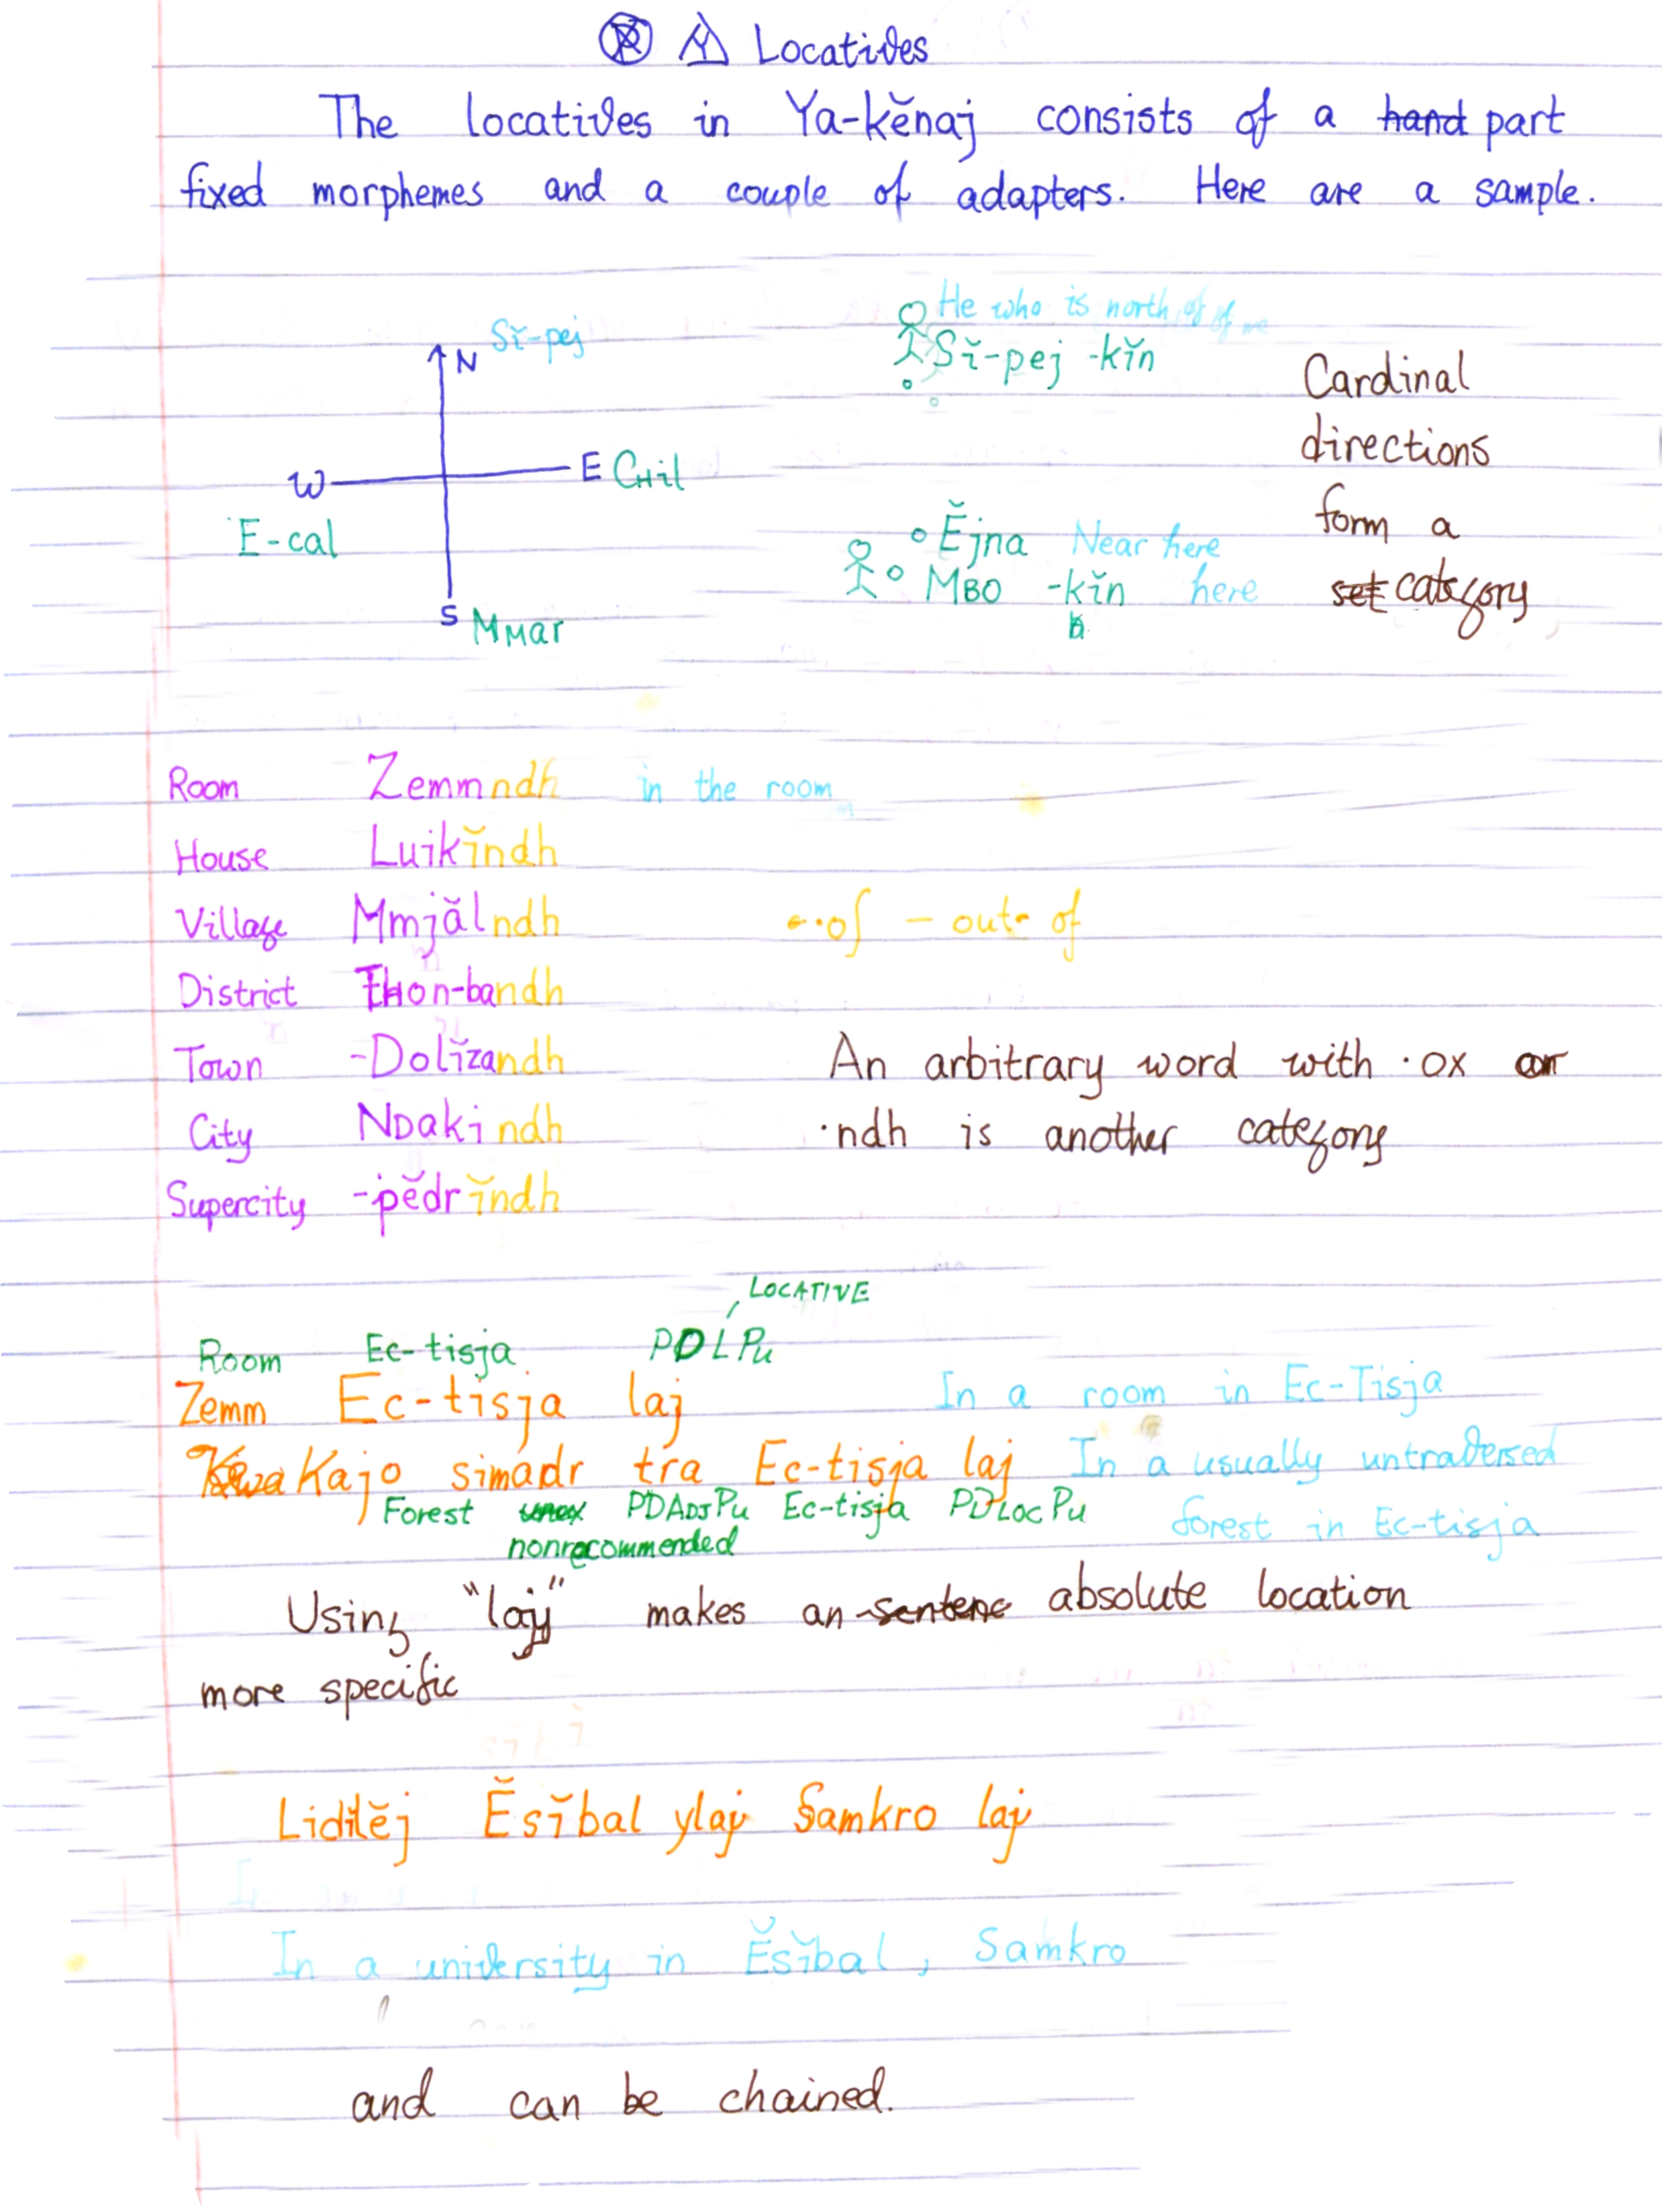 Locatives
The locatives in Ya-kĕnaj consists of a hand part
fixed morphemes and a couple of adapters. Here are a sample.
He who is north of me
Sĭ-pej
N
Sĭ-pej -kĭn
Cardinal
directions
form a
set category
W
E Cʜil
E-cal
Ĕjna Near here
Mʙo -kĭn here
S Mᴍar
Room Zemmndh in the room
House Luikĭndh
Village Mmjălndh
..of – out of
District Tʜon-bandh
Town -Dolĭzandh
An arbitrary word with ·ox or
City Nᴅakindh
·ndh is another category
Supercity -pĕdrĭndh
LOCATIVE
Room Ec-tisja PDLPu
Zemm Ec-tisja laj In a room in Ec-Tisja
Kajo simadr tra Ec-tisja laj In a usually untraversed
Forest PDAᴅᴊPu Ec-tisja PDʟᴏᴄPu forest in Ec-tisja
nonrecommended
Using "laj" makes an sentenc absolute location
more specific
Ĕsĭbal ylaj Samkro laj
In a university in Ĕsĭbal, Samkro
and can be chained.